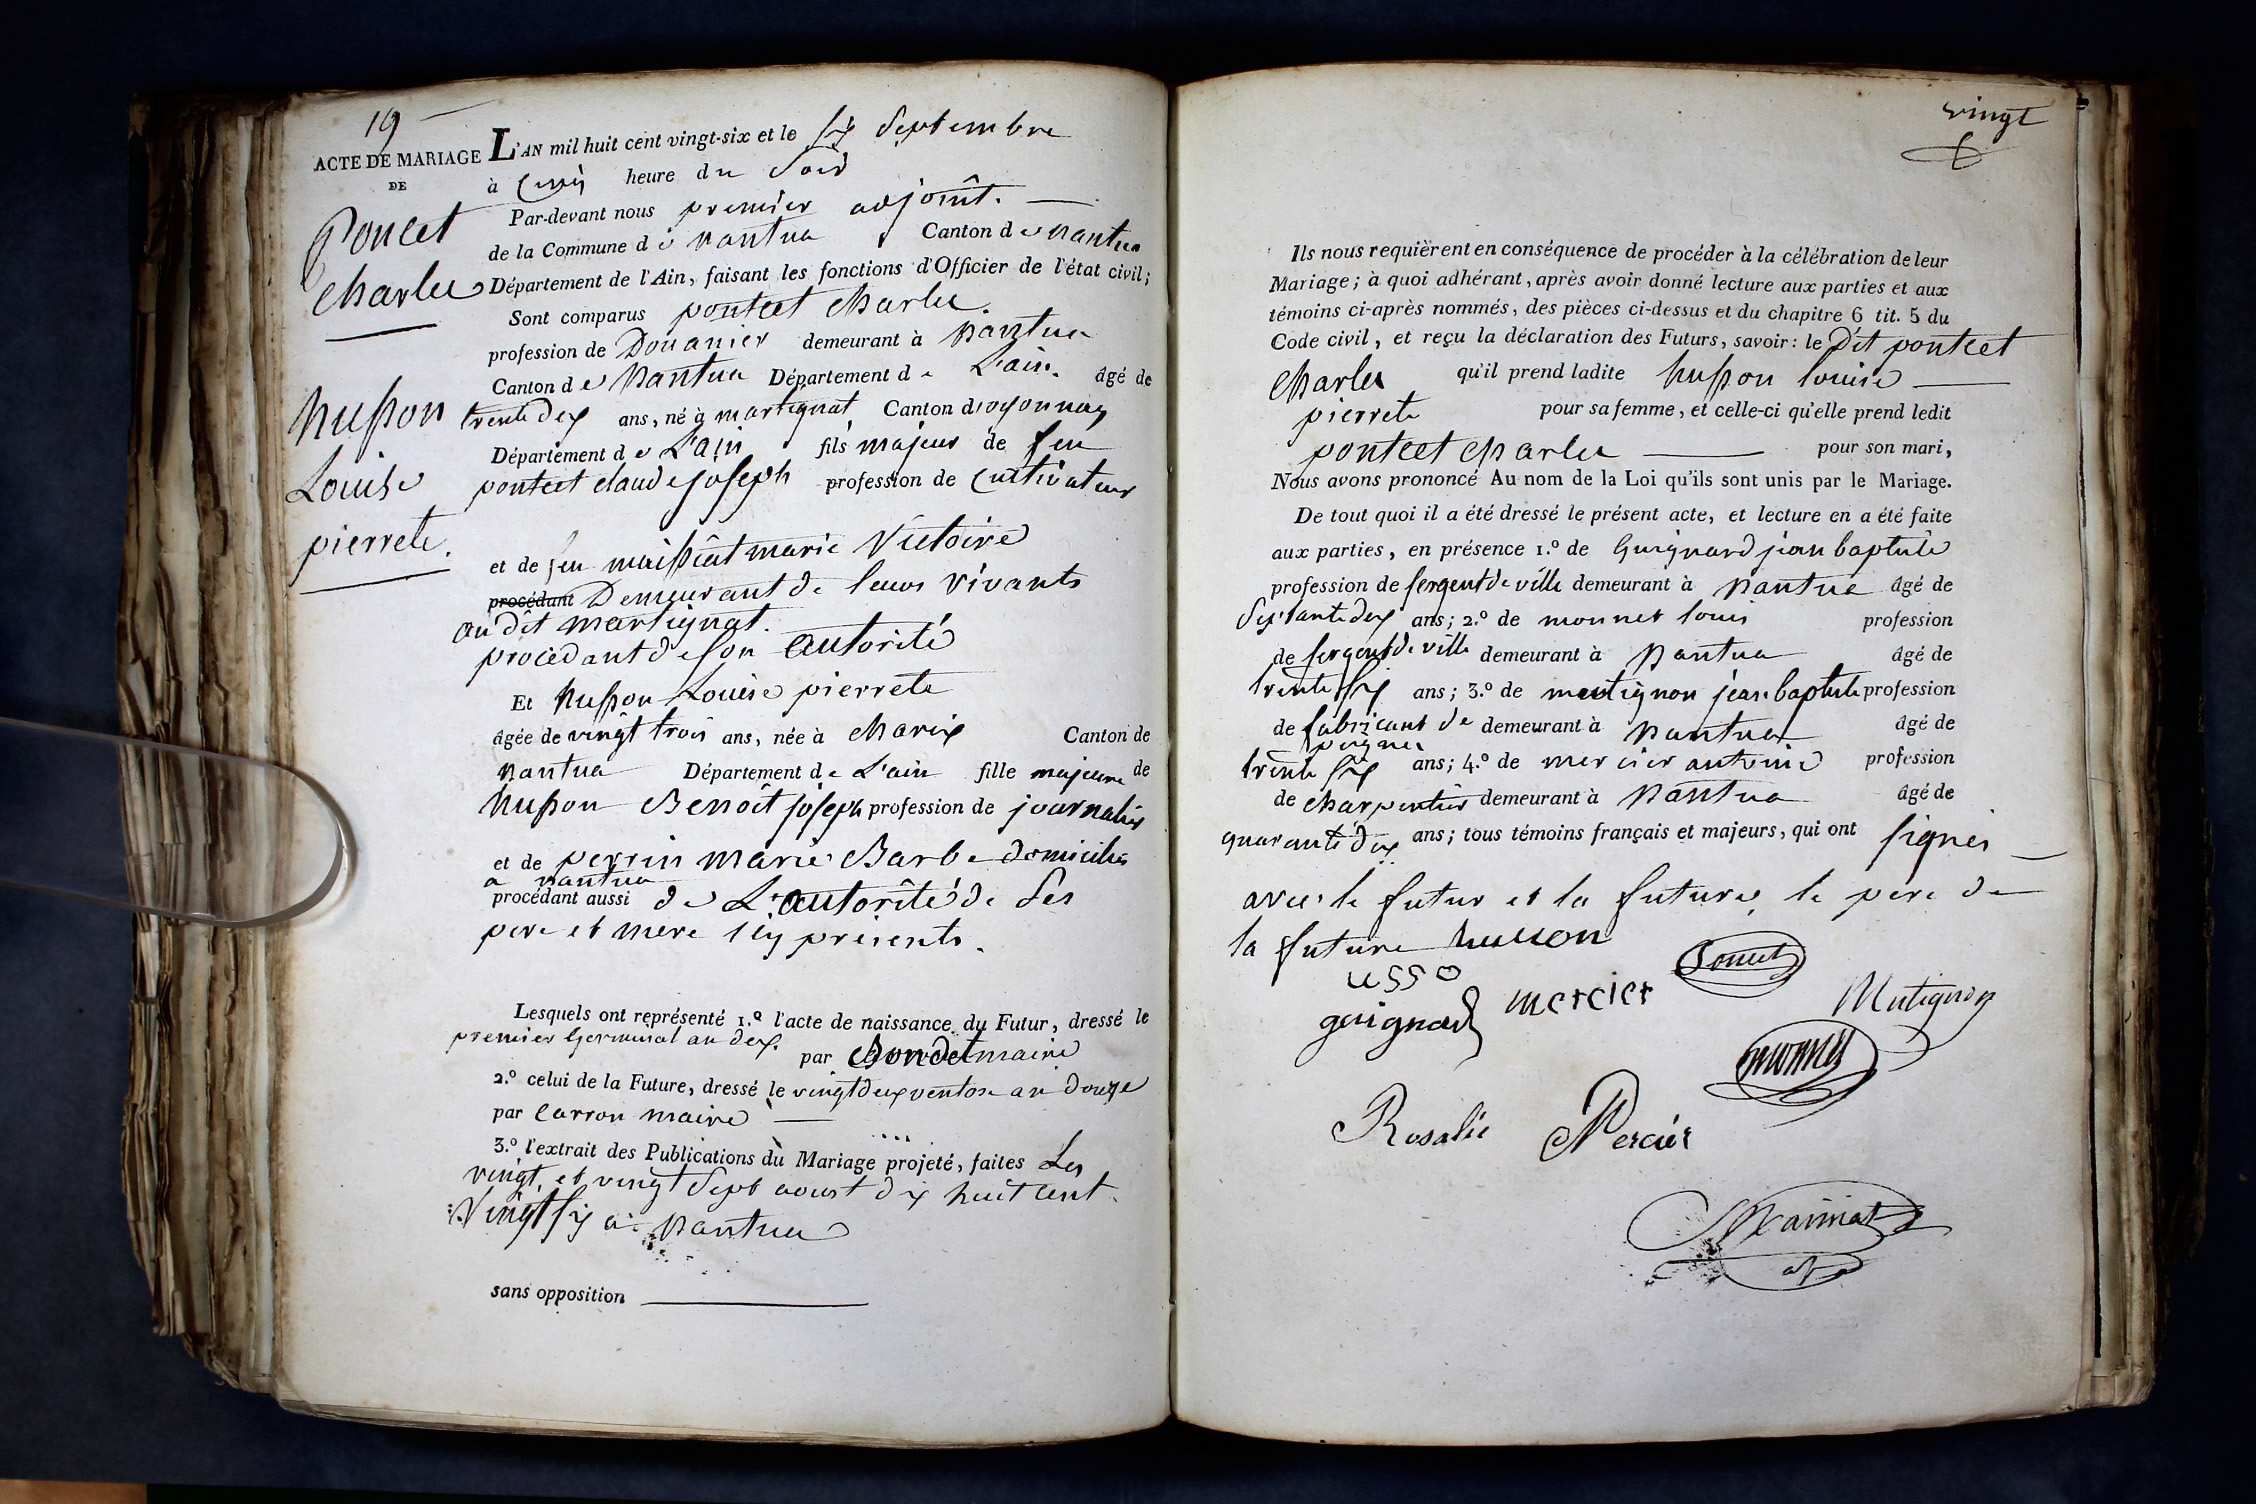 19
ACTE DE MARIAGE
DE
Poncet
Charles
husson
Louise
pierrete.
L'AN mil huit cent vingt-six et le six Septembre
à cinq heure du Soir
Par-devant nous premier adjoint.
de la Commune de nantua Canton de nantua
Département de l'Ain, faisant les fonctions d'Officier de l'état civil;
Sont comparus pontcet Charles.
profession de Douanier demeurant à nantua
Canton de Nantua Département de L'ain. âgé de
trente deux ans, né à martignat Canton d'oyonnax
Département de L'ain fils majeur de feu
pontcet claude joseph profession de cultivateur
et de feu maissiat marie Victoire
procédant Demeurant de leurs vivants
au dit martignat.
procedant de son autorité
Et husson Louise pierrete
âgée de vingt trois ans, née à Charix Canton de
nantua Département de L'ain fille majeure de
husson Benoît joseph profession de journalier
et de perrin marie Barbe domiciliés
a nantua
procédant aussi de L'autorité de Ses
pere et mere icy présents.
Lesquels ont représenté 1.º l'acte de naissance du Futur, dressé le
premier Germinal an deux. par Bondet maire
2.º celui de la Future, dressé le vingt deux ventose an douze
par Carron maire
3.º l'extrait des Publications du Mariage projeté, faites Les
vingt, et vingt Sept aoust dix huit cent
vingt six a nantua
sans opposition
vingt
Ils nous requièrent en conséquence de procéder à la célébration de leur
Mariage; à quoi adhérant, après avoir donné lecture aux parties et aux
témoins ci-après nommés, des pièces ci-dessus et du chapitre 6 tit. 5 du
Code civil, et reçu la déclaration des Futurs, savoir: le Dit pontcet
Charles qu'il prend ladite husson louise
pierrete pour sa femme, et celle-ci qu'elle prend ledit
pontcet Charles pour son mari,
Nous avons prononcé Au nom de la Loi qu'ils sont unis par le Mariage.
De tout quoi il a été dressé le présent acte, et lecture en a été faite
aux parties, en présence 1.º de Guignard jean baptiste
profession de sergent de ville demeurant à nantua âgé de
Septante deux ans; 2.º de monnet louis profession
de sergent de ville demeurant à nantua âgé de
trente six ans; 3.º de mutignon jean baptiste profession
de fabricant de demeurant à nantua âgé de
peignes
trente six ans; 4.º de mercier antoine profession
de charpentier demeurant à nantua âgé de
quarante dix ans; tous témoins français et majeurs, qui ont signés
avec le futur et la future, le pere de
la future husson
Poncet
usso
guignard mercier Mutignon
monnet
Rosalie Mercier